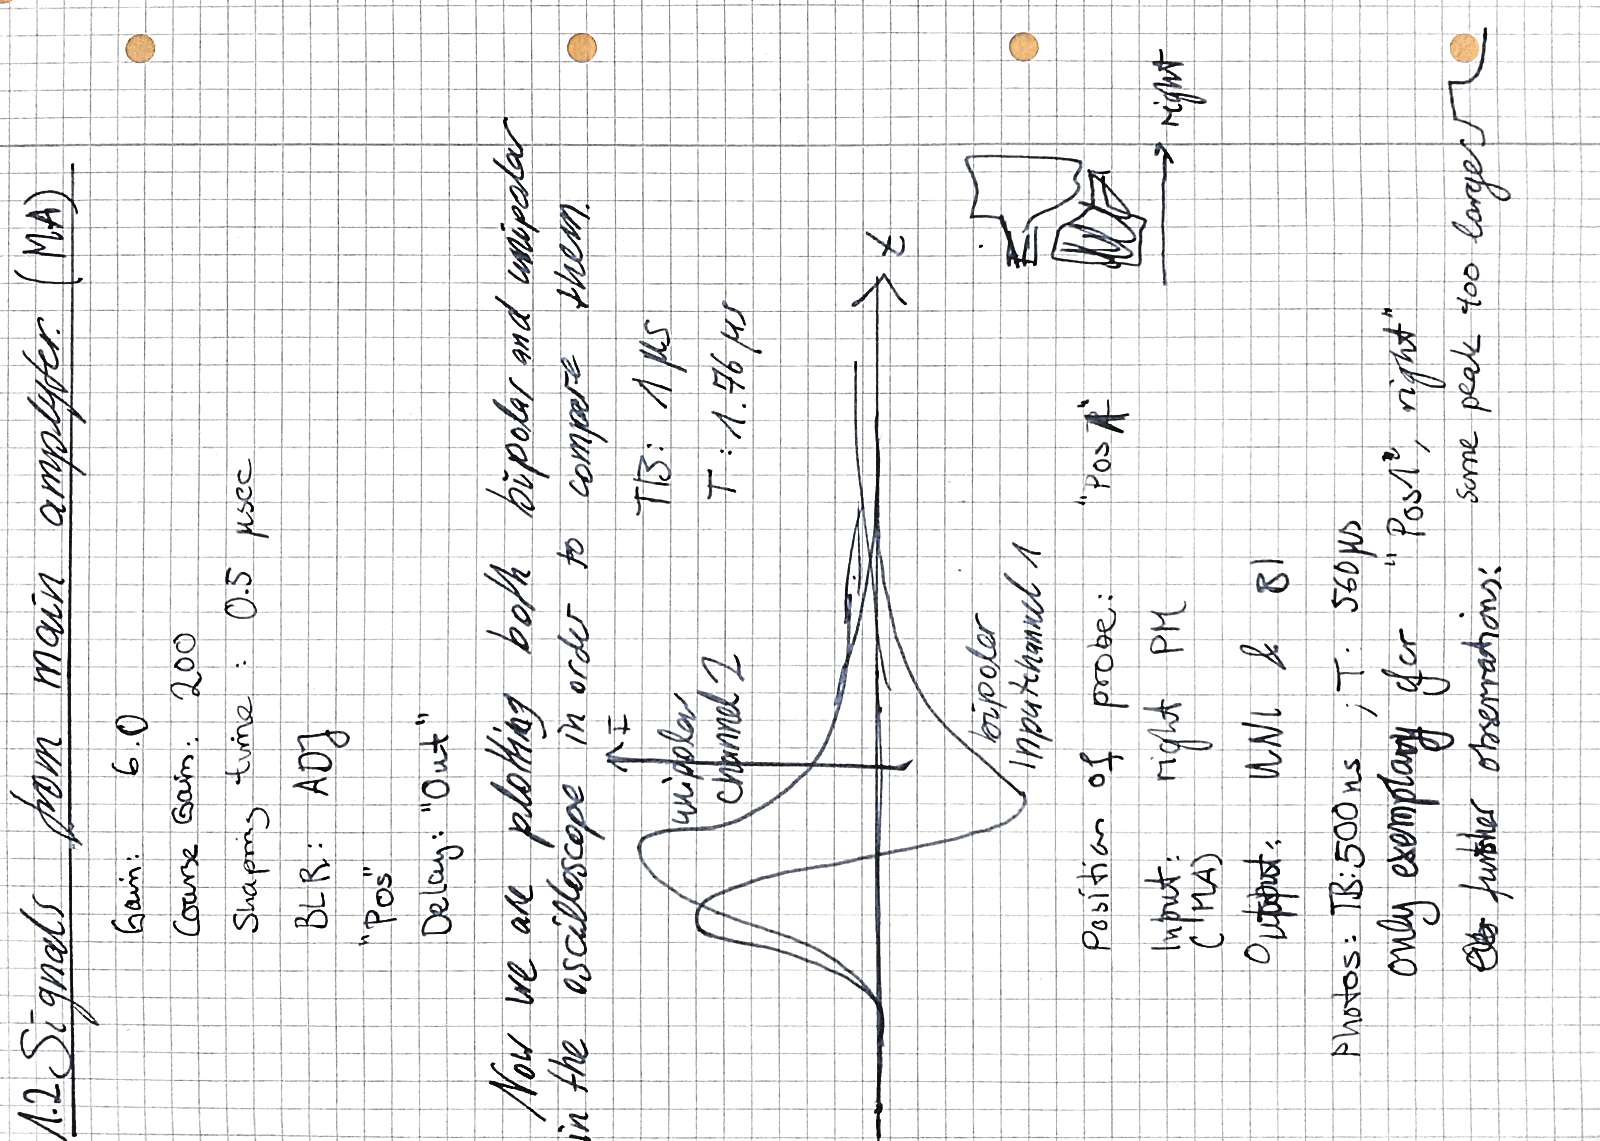 1.2 Signals from main amplyfer (MA)
Gain: 6.0
Course Gain: 200
Shaping time: 0.5 µsec
BLR: ADJ
"Pos"
Delay: "Out"
Now we are plotting both bipolar and unipolar
in the oscilloscope in order to compare them.
TB: 1 µs
T: 1.76 µs
unipolar
channel 2
t
bipolar
Inputchannel 1
Position of probe: "Pos 1"
right
Input: right PM
(MA)
Output: UNI & BI
Photos: TB: 500 ns ; T: 560 µs
only exemplary for "Pos 1", right"
further observations: some peak too large